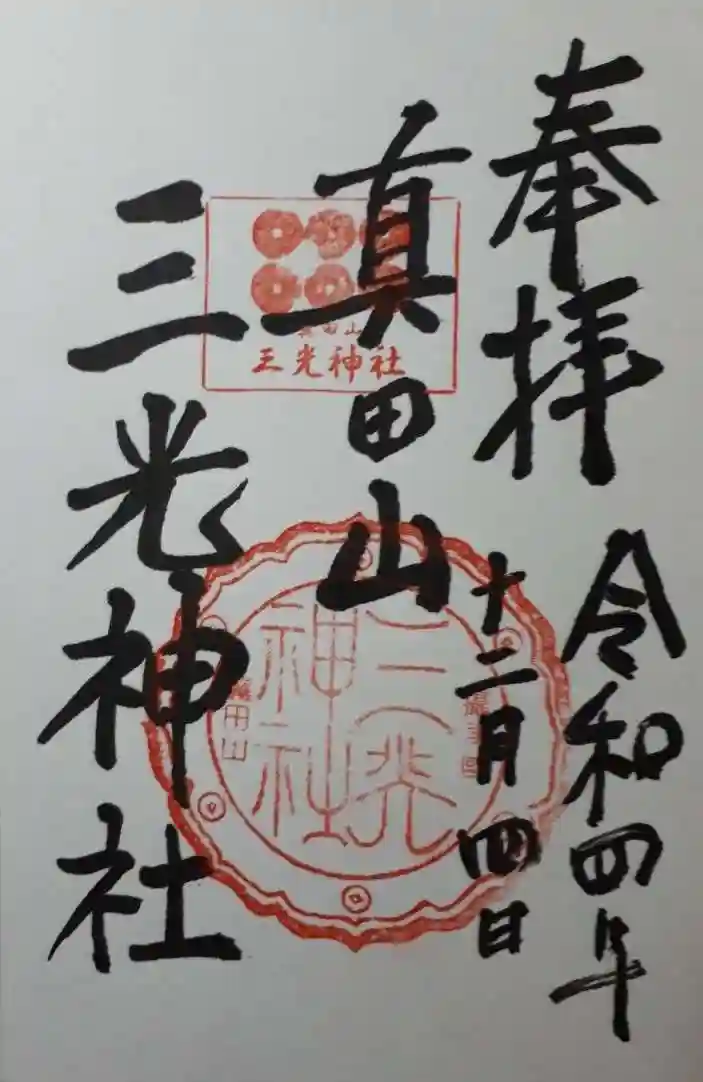 奉拝
令和四年
十二月四日
真田山
三光神社
三光神社
三光
神社
田山